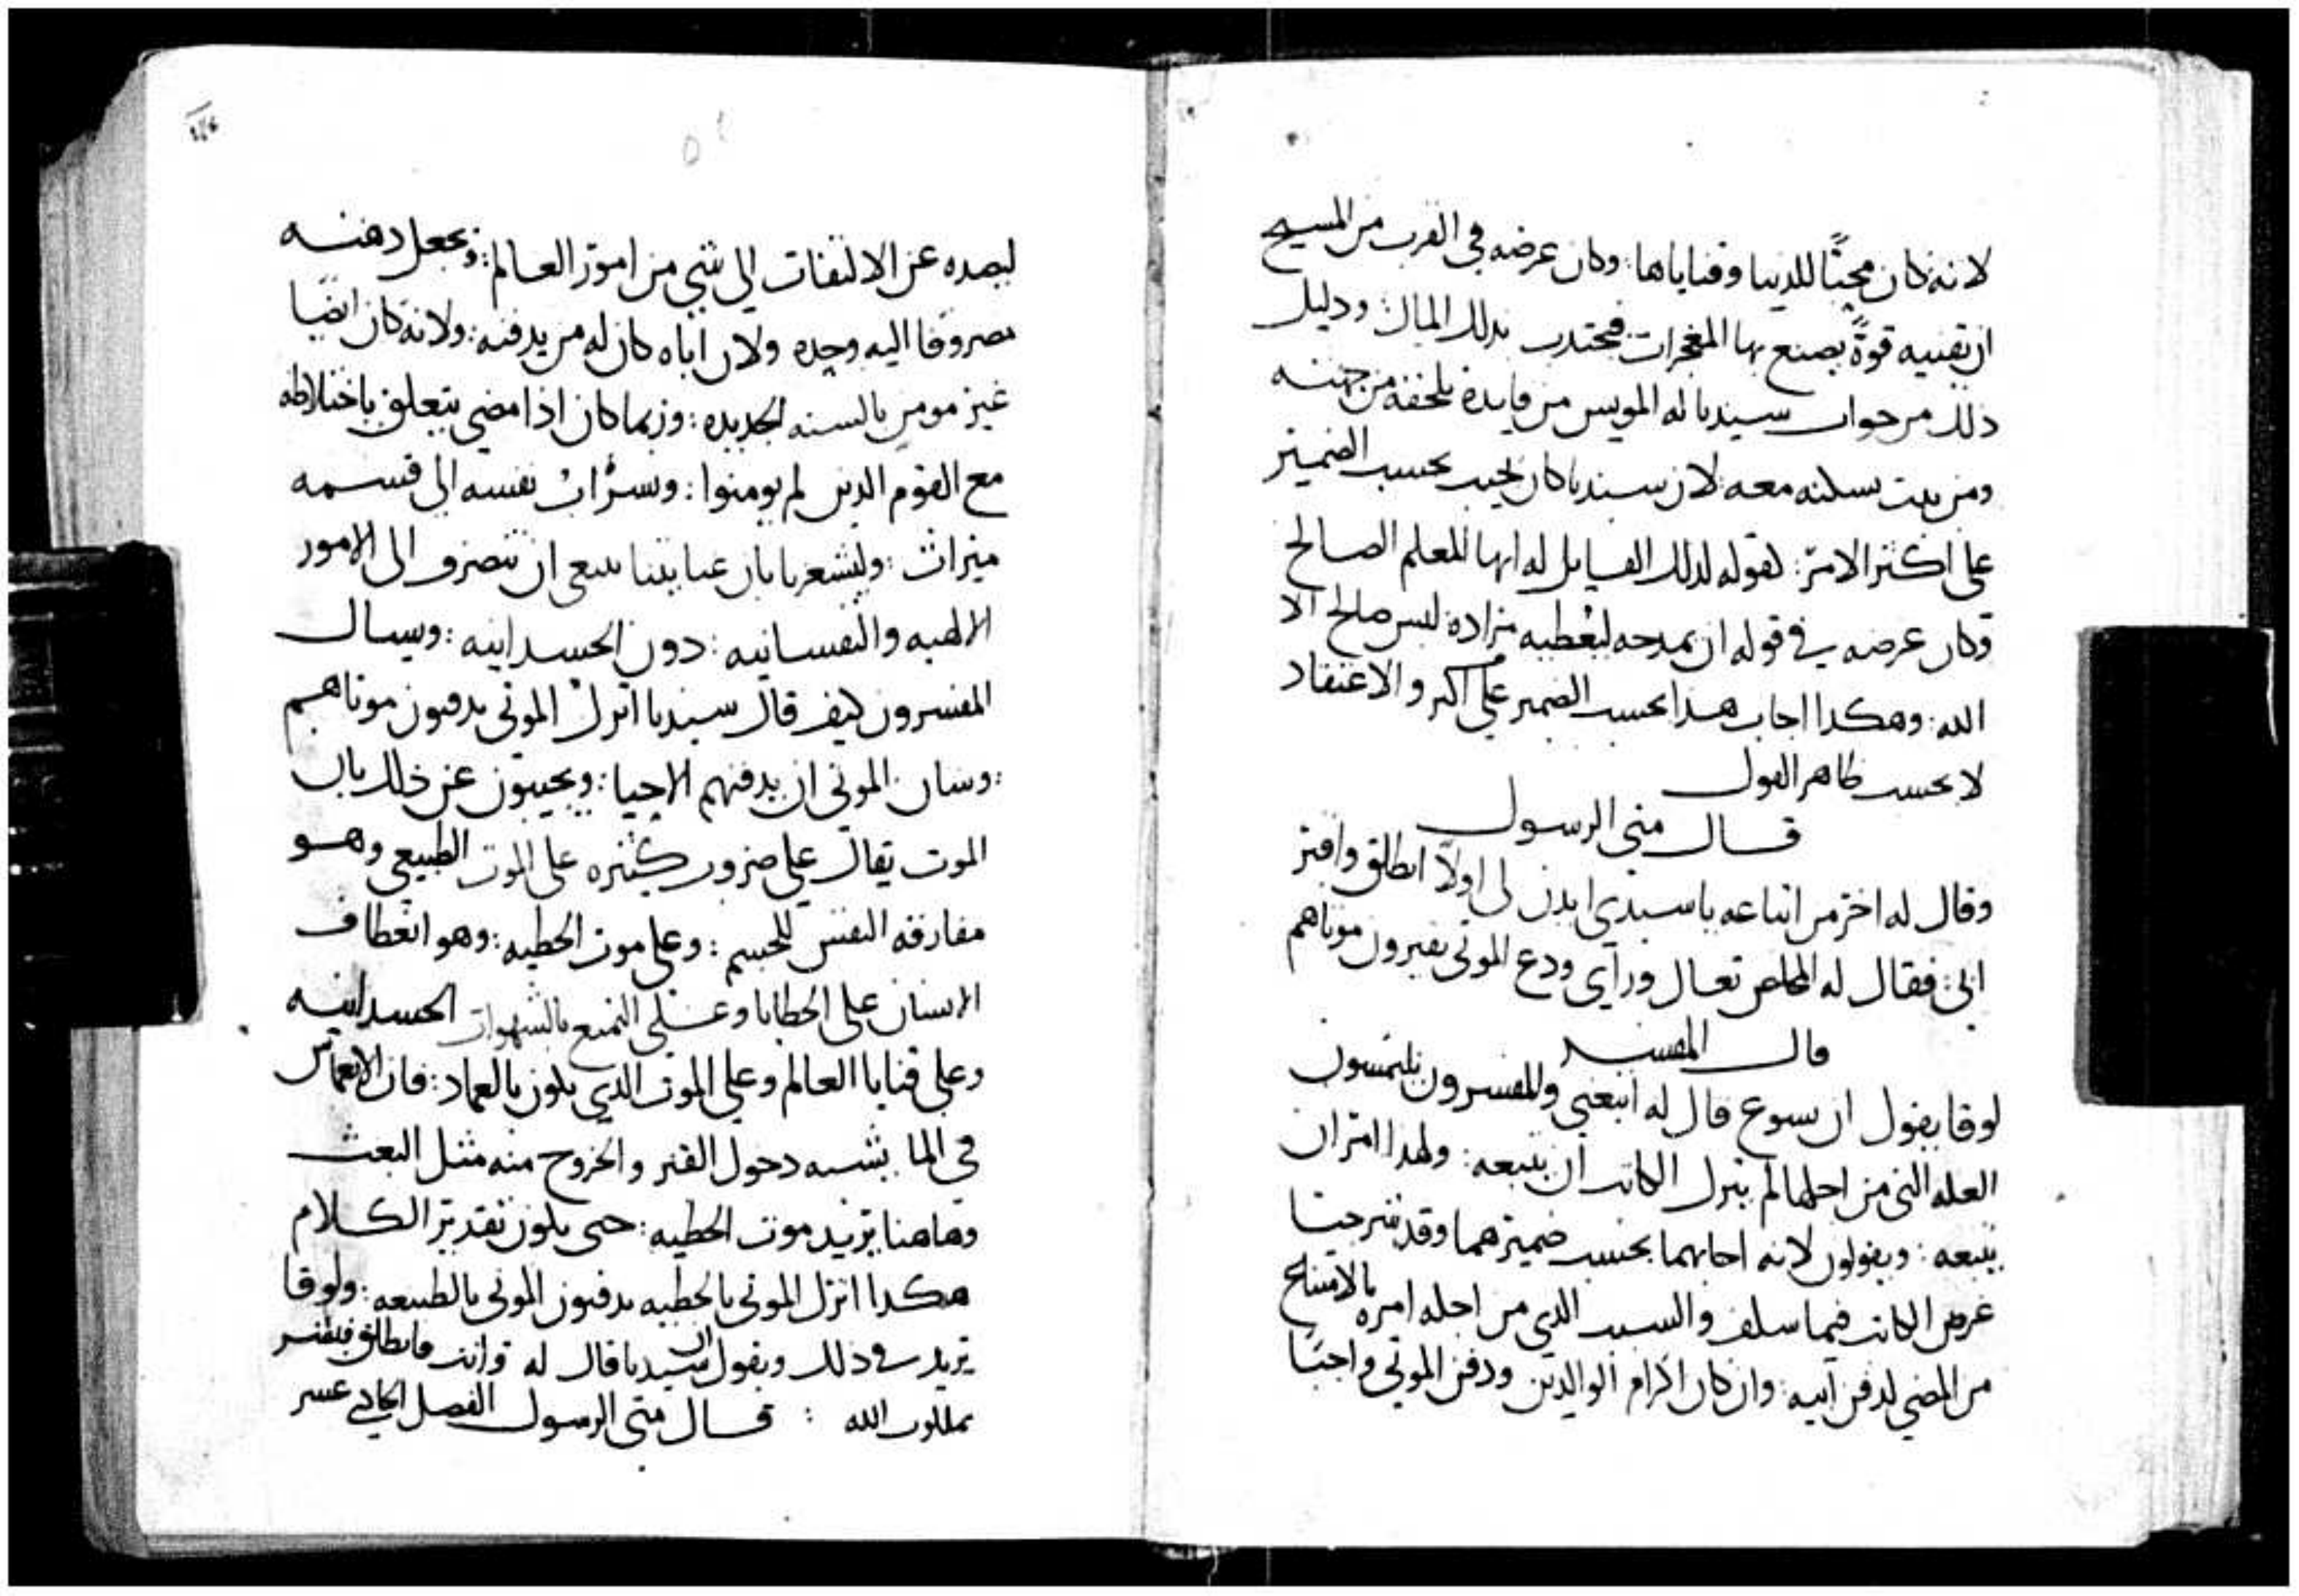 لانه كان محبًا للدنيا وقناياها: وكان عرضه في القرب من المسيح
ان يقنيه قوةً يصنع بها المعجزات فيجتدب بدلك المال: ودليل
ذلك من جواب سيدنا له المويس من فايدة تلحقه من جهته
ومن بيت يسكنه معه لان سيدنا كان يجيب بحسب الضمير
على اكثر الامر: كقوله لدلك القايل له ايها المعلم الصالح
وكان عرضه في قوله ان يمدحه ليعطيه مراده: ليس صالح الا
الله: وهكدا اجاب هدا بحسب الضمير على اكبر والاعتقاد
لا بحسب ظاهر القول
قال متى الرسول
وقال له اخر من اتباعه يا سيدي ايدن لي اولاً انطلق واقبر
ابي: فقال له المخلص تعال وراي ودع الموتى يقبرون موتاهم
قال المفسر
لوقا يقول ان يسوع قال له اتبعني والمفسرون يلتمسون
العله التي من اجلها لم يترك الكاتب ان يتبعه: ولهدا امر ان
يتبعه: ويقولون لانه اجابهما بحسب ضميرهما وقد شرحنا
غرض الكاتب فيما سلف والسبب الدي من اجله امره بالامتناع
من المضي لدفن ابيه: وان كان اكرام الوالدين ودفن الموتى واجبًا
ليصده عن الالتفات الى شي من امور العالم: ويجعل دهنه
مصروفا اليه وحده ولان اباه كان له من يدفنه: ولانه كان ايضًا
غير مومن بالسنه الجديده: وربما كان اذا مضى يتعلق باختلاطه
مع القوم الدين لم يومنوا: وتسرات نفسه الى قسمه
ميراث: وليشعرنا بان عنايتنا ينبغي ان تنصرف الى الامور
الالهيه والنفسانيه: دون الجسدانيه: ويسال
المفسرون كيف قال سيدنا اترك الموتى يدفنون موتاهم
: وشان الموتى ان يدفنهم الاحيا: ويجيبون عن ذلك بان
الموت يقال على ضروب كثيره على الموت الطبيعي وهو
مفارقه النفس للجسم: وعلى موت الخطيه: وهو انعطاف
الانسان على الخطايا وعلى التمتع بالشهوات الجسدانيه
وعلى قنايا العالم وعلى الموت الدي يكون بالعماد: فان الانغماس
في الما يشبه دخول القبر والخروج منه مثل البعث
وهاهنا يريد موت الخطيه: حتى يكون تقدير الكلام
هكدا اترك الموتى بالخطيه يدفنون الموتى بالطبيعه: ولوقا
يزيد في ذلك ويقول ان سيدنا قال له وانت فانطلق فبشر
بملكوت الله : قال متى الرسول الفصل الحادي عشر